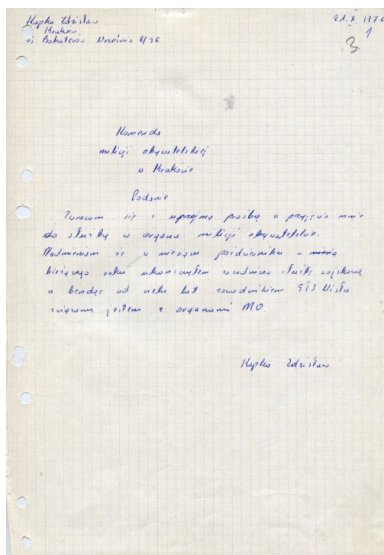 Kapka Zdzisław
Kraków
21.X 1976
1
3
Komenda
milicji obywatelskiej
w Krakowie
Podanie
Zwracam się z uprzejmą prośbą o przyjęcie mnie
do służby w organa milicji obywatelskiej.
Nadmieniam że w miesiącu październiku
bieżącego roku ukończyłem zasadniczą służbę wojskową
a bendąc od wielu lat zawodnikiem GTS Wisła
związany jestem z organami MO
Kapka Zdzisław